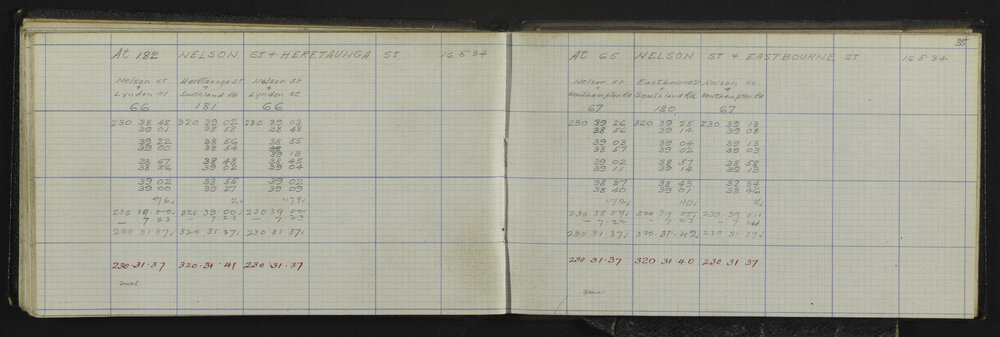 At 182 NELSON ST & HERETAUNGA ST 16.5.34
Nelson St Heretaunga St Nelson St
& & &
Lynden St Southland Rd Lynden St
66 181 66
230 38 48 320 39 02 230 39 03
39 01 38 58 38 48
39 22 38 56 38 55
39 00 38 54
39 13
38 47 38 48 38 45
38 56 39 02 39 04
39 02 38 55 39 02
39 00 39 27 39 09
476 2 479
230 39 00 320 39 00 230 39 00
- 7 23 - 7 23 - 7 23
230 31 37 320 31 37 230 31 37
230 31 37 320 31 41 230 31 37
35
At 65 NELSON ST & EASTBOURNE ST 16.5.34
Nelson St Eastbourne St Nelson St
& & &
Southampton Rd Southland Rd Southampton Rd
67 180 67
230 39 26 320 39 25 230 39 13
38 56 39 14 39 08
39 03 39 04 39 13
38 57 39 02 39 03
39 02 38 57 38 58
39 11 39 14 39 13
38 37 38 43 38 34
38 40 39 01 38 46
472 40
230 38 59 320 39 05 230 39 01
- 7 22 - 7 23 - 7
230 31 37 320 31 42 230 31 37
230 31 37 320 31 40 230 31 37